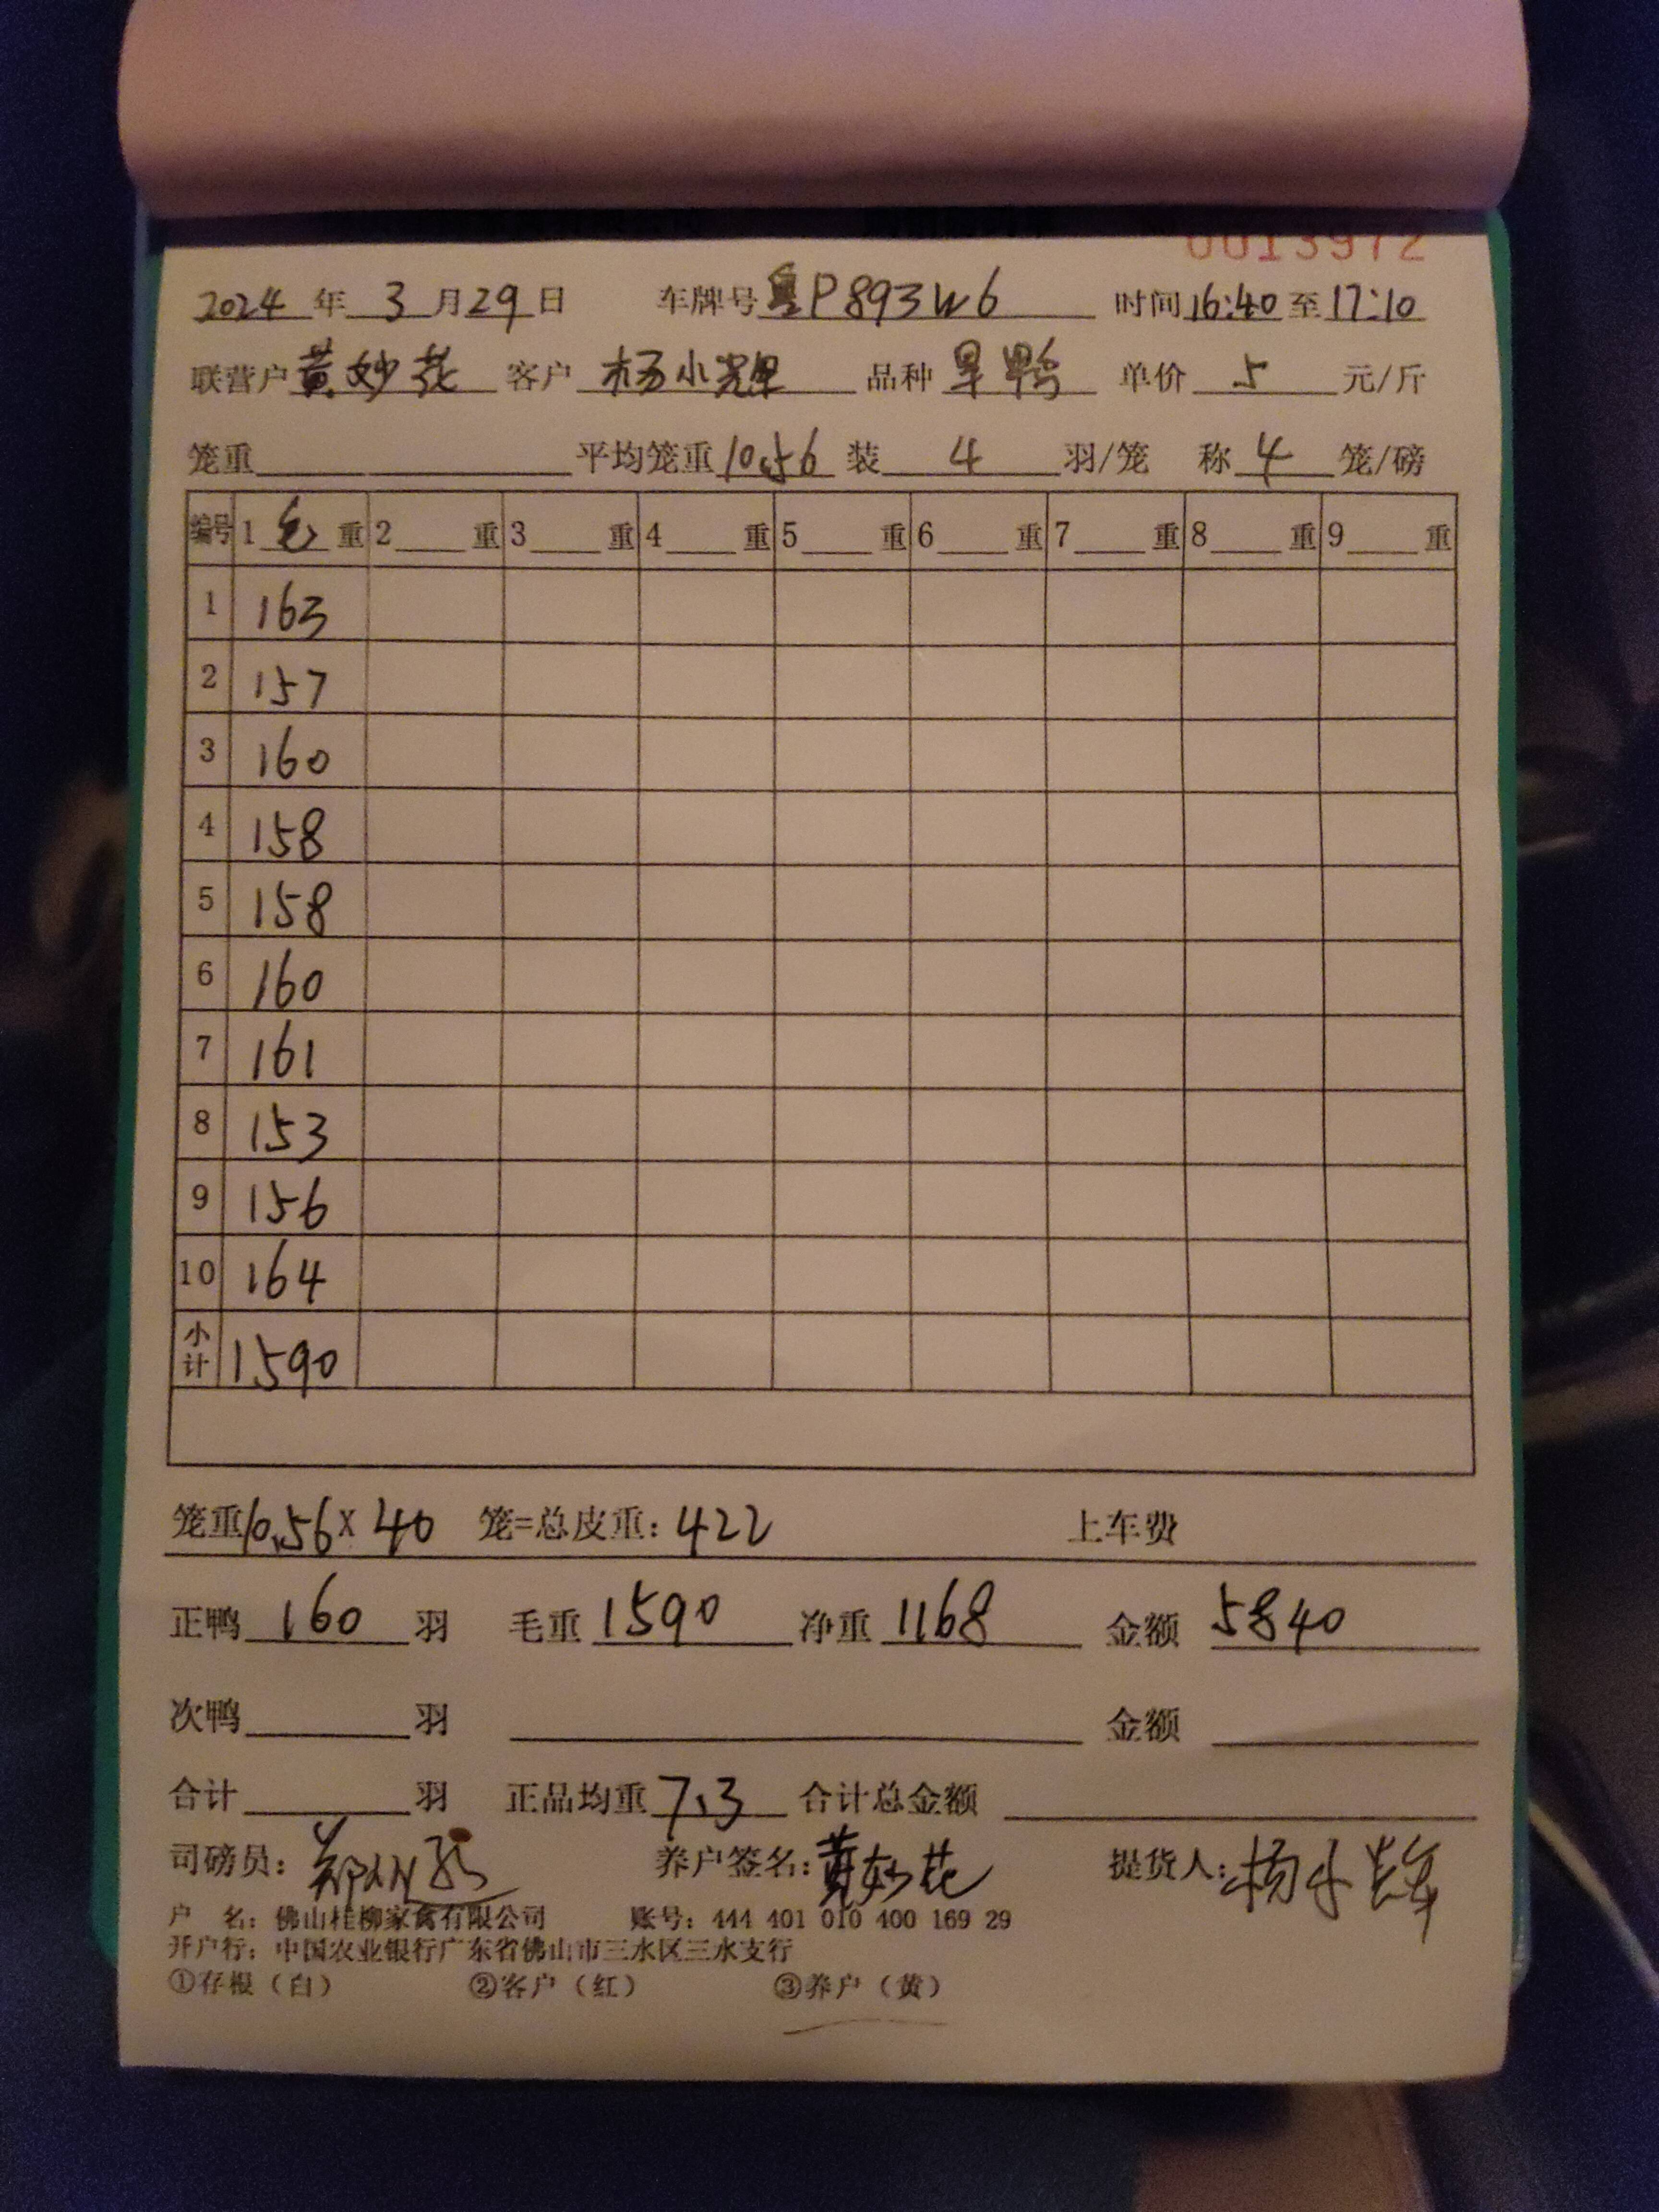 0013972
2024年3月29日 车牌号粤P893W6 时间16:40至17:10
联营户黄妙花 客户 杨小辉 品种 旱鸭 单价 5 元/斤
笼重 平均笼重10.56 装 4 羽/笼 称 4 笼/磅
编号 1毛重 2 重 3 重 4 重 5 重 6 重 7 重 8 重 9 重
1 163
2 157
3 160
4 158
5 158
6 160
7 161
8 153
9 156
10 164
小计 1590
笼重10.56X 40 笼=总皮重:422 上车费
正鸭 160 羽 毛重 1590 净重 1168 金额 5840
次鸭 羽 金额
合计 羽 正品均重 7.3 合计总金额
司磅员: 养户签名:黄妙花 提货人:杨小辉
户 名:佛山桂柳家禽有限公司 账号:444 401 010 400 169 29
开户行:中国农业银行广东省佛山市三水区三水支行
①存根(白) ②客户(红) ③养户(黄)